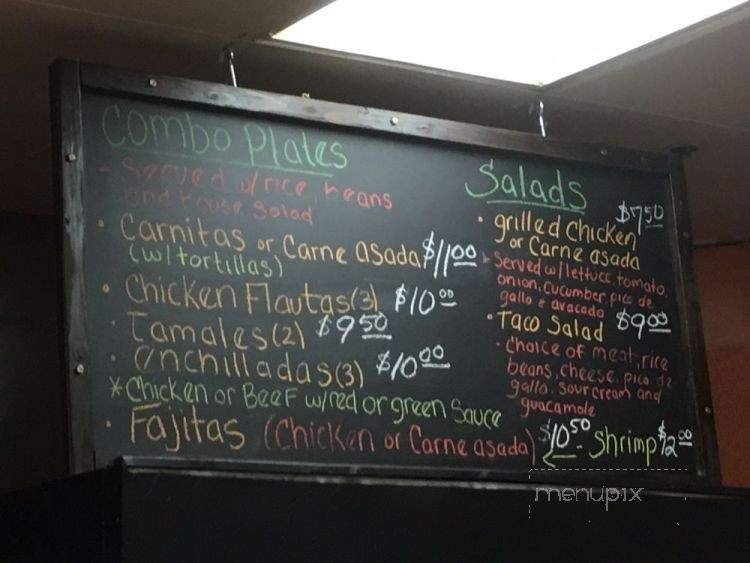 Combo Plates
- Served w/rice, beans
and house salad
• Carnitas or Carne asada $11.00
(w/tortillas)
• Chicken Flautas (3) $10.00
• Tamales (2) $9.50
• enchilladas (3) $10.00
* Chicken or Beef w/red or green sauce
• Fajitas (Chicken or Carne asada) $10.50 - Shrimp $12.00
Salads
• grilled chicken $7.50
or Carne asada
- Served w/lettuce, tomato
onion, cucumber, pico de
gallo e avacado
• Taco Salad $9.00
- Choice of meat, rice
beans, cheese, pico de
gallo, sour cream and
guacamole
menupix